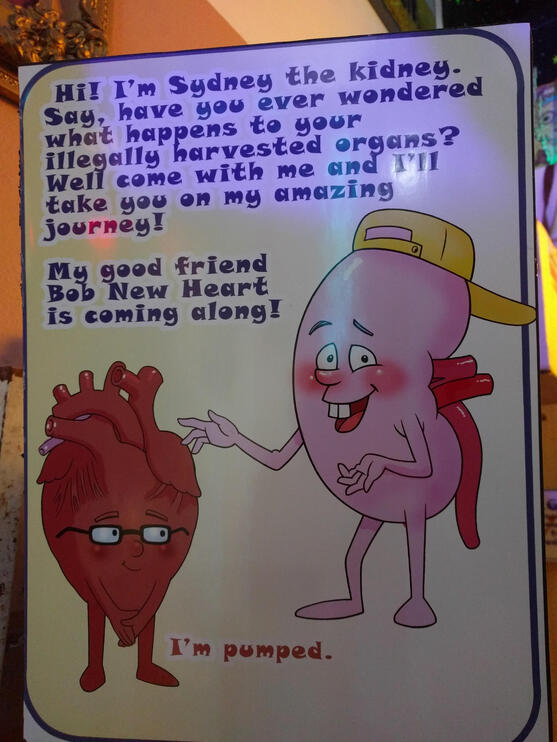 Hi! I'm Sydney the kidney.
Say, have you ever wondered
what happens to your
illegally harvested organs?
Well come with me and I'll
take you on my amazing
journey!
My good friend
Bob New Heart
is coming along!
I'm pumped.